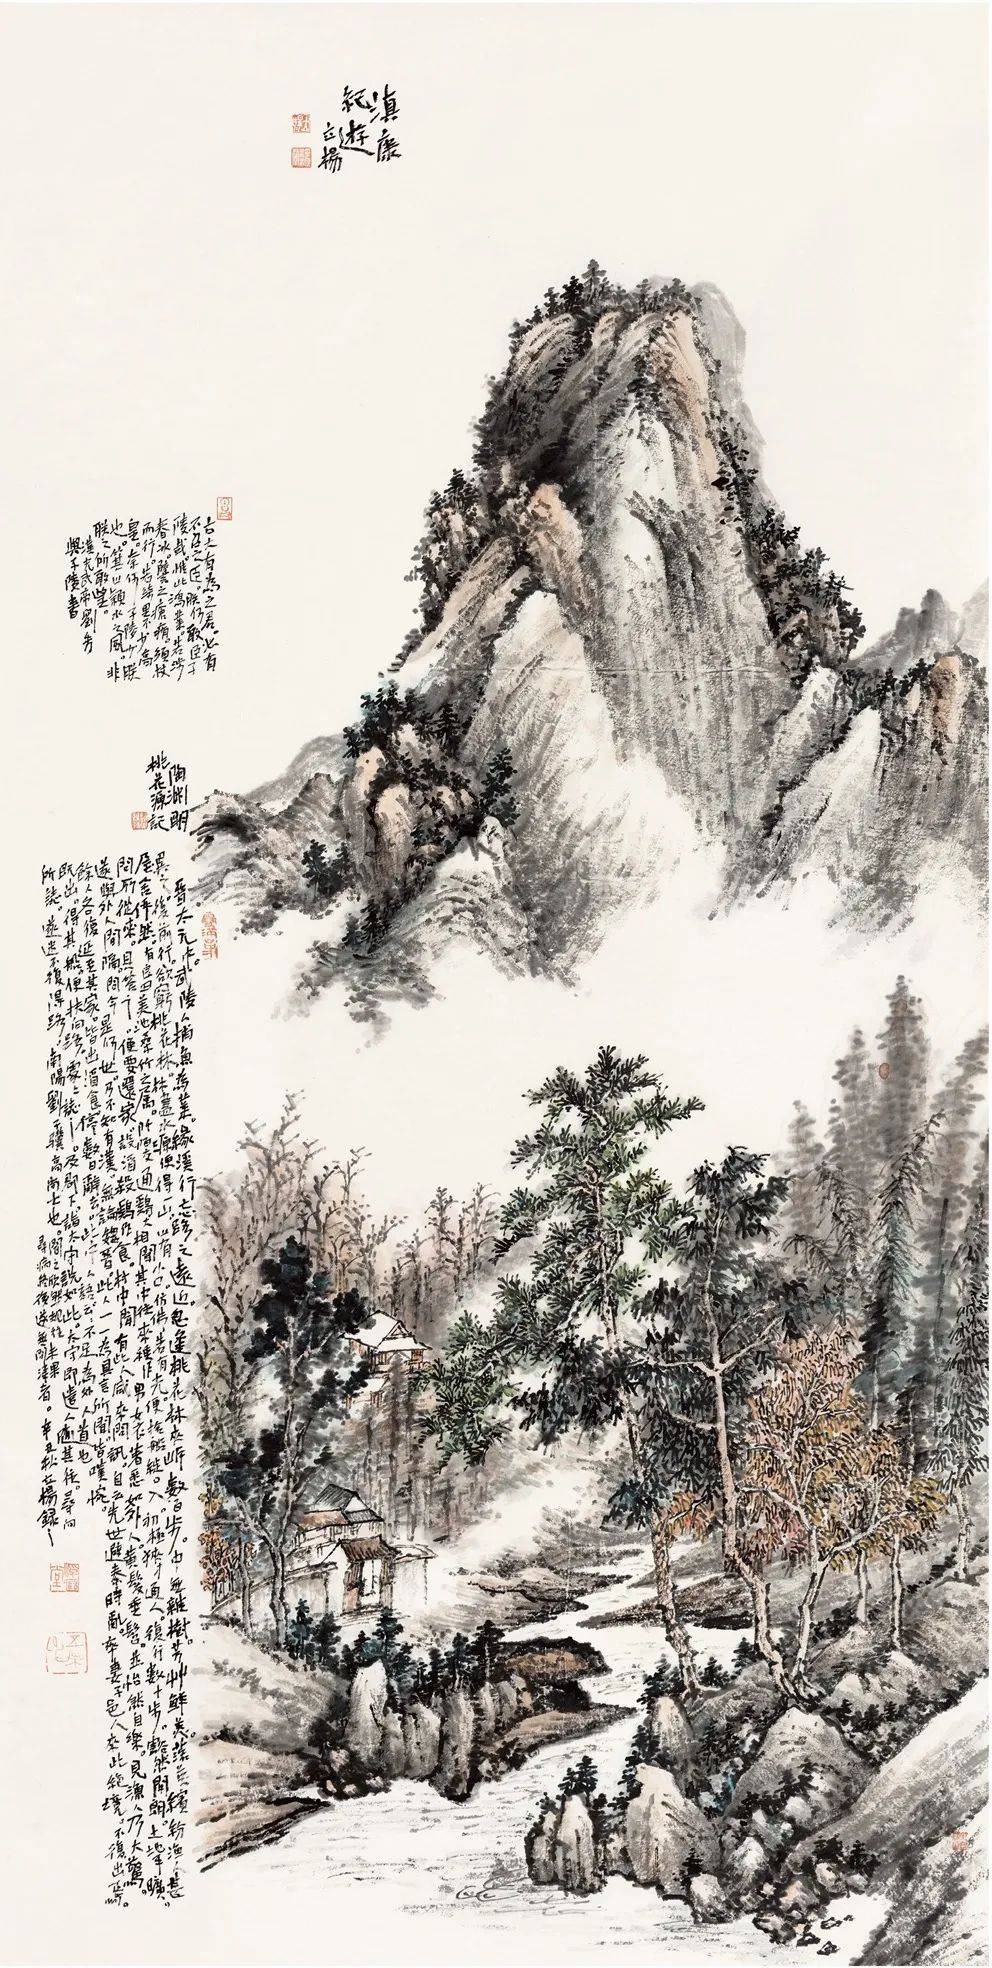 滇康
紀遊
立楊
古大有為之君。必有
不召之臣。朕何敢臣子
陵哉。惟此鴻業。若涉
春冰。譬之瘡痏。須杖
而行。若綺里不少高
皇。奈何子陵少朕
也。箕山潁水之風。非
朕之所敢望。
漢光武帝劉秀
與子陵書
陶淵明
桃花源記
晉太元中武陵人捕魚為業。緣溪行忘路之遠近忽逢桃花林夾岸數百步。中無雜樹芳艸鮮美。落英繽紛漁人甚
異之。後前行。欲窮桃花林。林盡水源便得一山。山有小口。仿佛若有光便捨船從口入。初極狹才通人。復行數十步。豁然開朗。土地平曠。
屋舍儼然。有良田美池桑竹之屬。阡陌交通雞犬相聞其中往來種作男女衣著悉如外人。黃髮垂髫。並怡然自樂。見漁人乃大驚。
問所從來。具答之。便要還家。設酒殺雞作食。村中聞有此人咸來問訊。自云先世避秦時亂。率妻子邑人來此絕境。不復出焉。
遂與外人間隔。問今是何世。乃不知有漢。無論魏晉。此人一一為具言所聞皆嘆惋。
餘人各復延至其家。皆出酒食。停數日辭去。此中人語云。不足為外人道也
既出。得其船。便扶向路。處處誌之。及郡下詣太守說如此。太守即遣人隨其往。尋向
所誌。遂迷不復得路。南陽劉子驥高尚士也。聞之欣然規往未果
尋病終後遂無問津者。辛丑秋立楊錄之